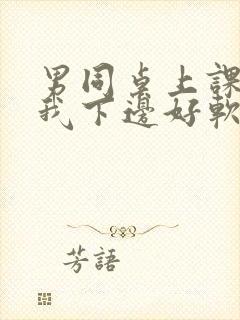 男同桌上課
我下邊好軟
芳語